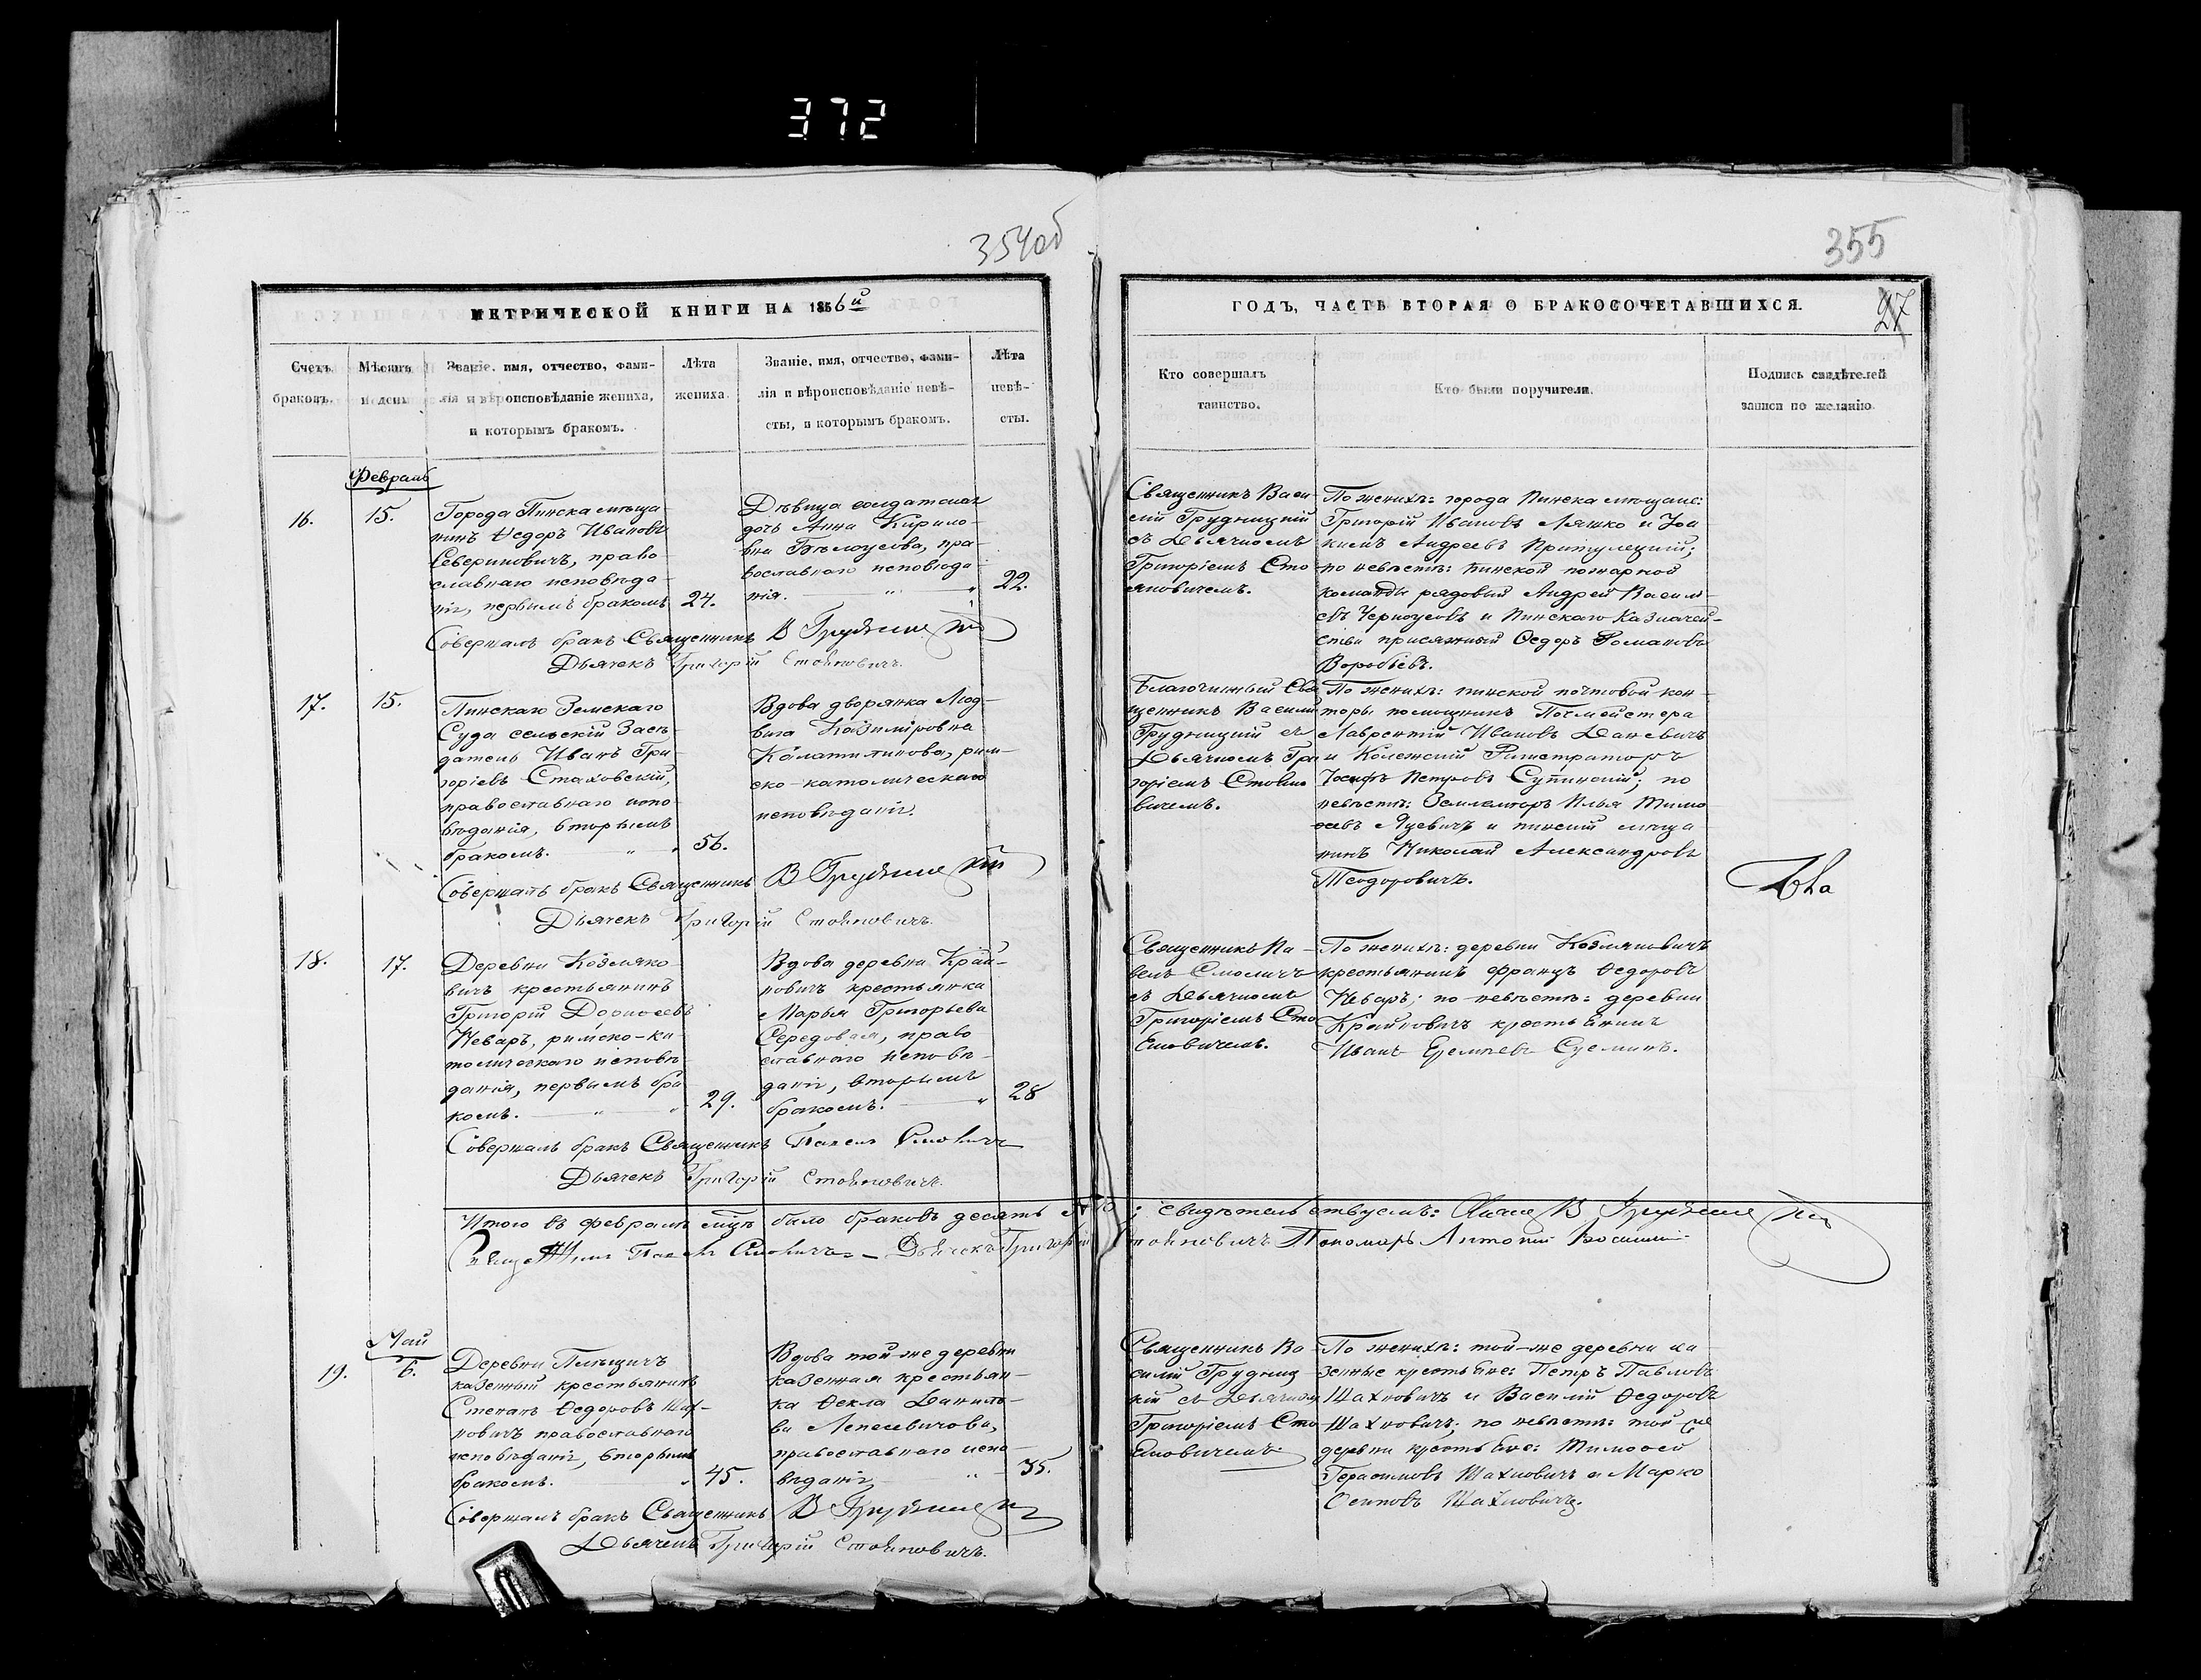 372
354об
МЕТРИЧЕСКОЙ КНИГИ НА 1856й
Счетъ
браковъ.
Мѣсяцъ
и день
Званіе, имя, отчество, фами-
лія и вѣроисповѣданіе жениха,
и которымъ бракомъ.
Лѣта
жениха.
Званіе, имя, отчество, фами-
лія и вѣроисповѣданіе невѣ-
сты, и которымъ бракомъ.
Лѣта
невѣ-
сты.
Февраль
16.
15.
Города Пинска мѣща
нинъ Ѳедоръ Ивановъ
Севериновичъ, право
славнаго исповѣда
нія, первымъ бракомъ
24.
Дѣвица солдатская
дочь Анна Кирило-
вна Бѣлоусова, пра-
вославнаго исповѣда
нія.
22.
Совершалъ бракъ Священникъ В Грудницкій
Дьячекъ Григорій Стояновичъ.
17.
15.
Пинскаго Земскаго
Суда сельскій Засѣ-
датель Иванъ Гри-
горіевъ Стаховскій,
православнаго испо-
вѣданія, вторымъ
бракомъ.
56.
Вдова дворянка Люд-
вига Казиміровна
римско-католическаго
исповѣданія.
Совершалъ бракъ Священникъ В Грудницкій
Дьячекъ Григорій Стояновичъ.
18.
17.
Деревни Козляко-
вичъ крестьянинъ
Григорій
Неваръ, римско-ка
толическаго исповѣ-
данія, первымъ бра
комъ.
29.
Вдова деревни Край-
новичъ крестьянка
Марья Григорьева
Середовая, право
славнаго исповѣ-
данія, вторымъ
бракомъ.
28
Совершалъ бракъ Священникъ Павелъ Смоличъ
Дьячекъ Григорій Стояновичъ.
Итого въ февралѣ мцѣ было браковъ десять
Священникъ Павелъ Смоличъ Дьячекъ Григорій
Май
19.
6.
Деревни
казенный крестьянинъ
Степанъ Ѳедоровъ Шах-
новичъ православнаго
исповѣданія, вторымъ
бракомъ.
45.
Вдова той-же деревни
казенная крестьян-
ка Ѳекла Данило-
ва Лепешевичова,
православнаго испо-
вѣданія
35.
Совершалъ бракъ Священникъ В Грудницкій
Дьячекъ Григорій Стояновичъ.
355
ГОДЪ, ЧАСТЬ ВТОРАЯ О БРАКОСОЧЕТАВШИХСЯ.
27
Кто совершалъ
таинство.
Кто были поручители.
Подпись свидѣтелей
записи по желанію
Священникъ Васи-
лій Грудницкій
съ Дьячкомъ
Григоріемъ Сто
яновичемъ.
По женихѣ: города Пинска мѣщане:
Григорій Ивановъ Ляшко и Іоа
кимъ Андреевъ Притулецкій;
по невѣстѣ: пинской пожарной
команды рядовый Андрей Василі-
евъ Черноусовъ и Пинскаго Казначей-
ства присяжный Ѳедоръ Романовъ
Воробьевъ.
Благочинный Свя
щенникъ Василій
Грудницкій съ
Дьячкомъ Гри
горіемъ Стояно
вичемъ.
По женихѣ: пинской почтовой кон-
торы помощникъ Почмейстера
Лаврентій Ивановъ Даневичъ
и Колежскій Регистраторъ
Іосифъ Петровъ Супинскій; по
невѣстѣ: Землемѣръ Илья Тимо
ѳеевъ Яцевичъ и пинскій мѣща
нинъ Николай Александровъ
Теодоровичъ.
Священникъ Па-
велъ Смоличъ
съ Дьячкомъ
Григоріемъ Сто
яновичемъ.
По женихѣ: деревни Козляковичъ
крестьянинъ Францъ Ѳедоровъ
Неваръ; по невѣстѣ: деревни
Крайновичъ крестьянинъ
Иванъ
свидѣтельствуемъ: В Грудницкій
Стояновичъ Пономарь Антоній
Священникъ Ва-
силій Грудниц-
кій съ Дьячкомъ
Григоріемъ Сто
яновичемъ
По женихѣ: той-же деревни ка
зенные крестьяне: Петръ Павловъ
Шахновичъ и Василій Ѳедоровъ
Шахновичъ; по невѣстѣ: той же
деревни крестьяне: Тимоѳей
Герасимовъ Шахновичъ и Марко
Осиповъ Шахновичъ.